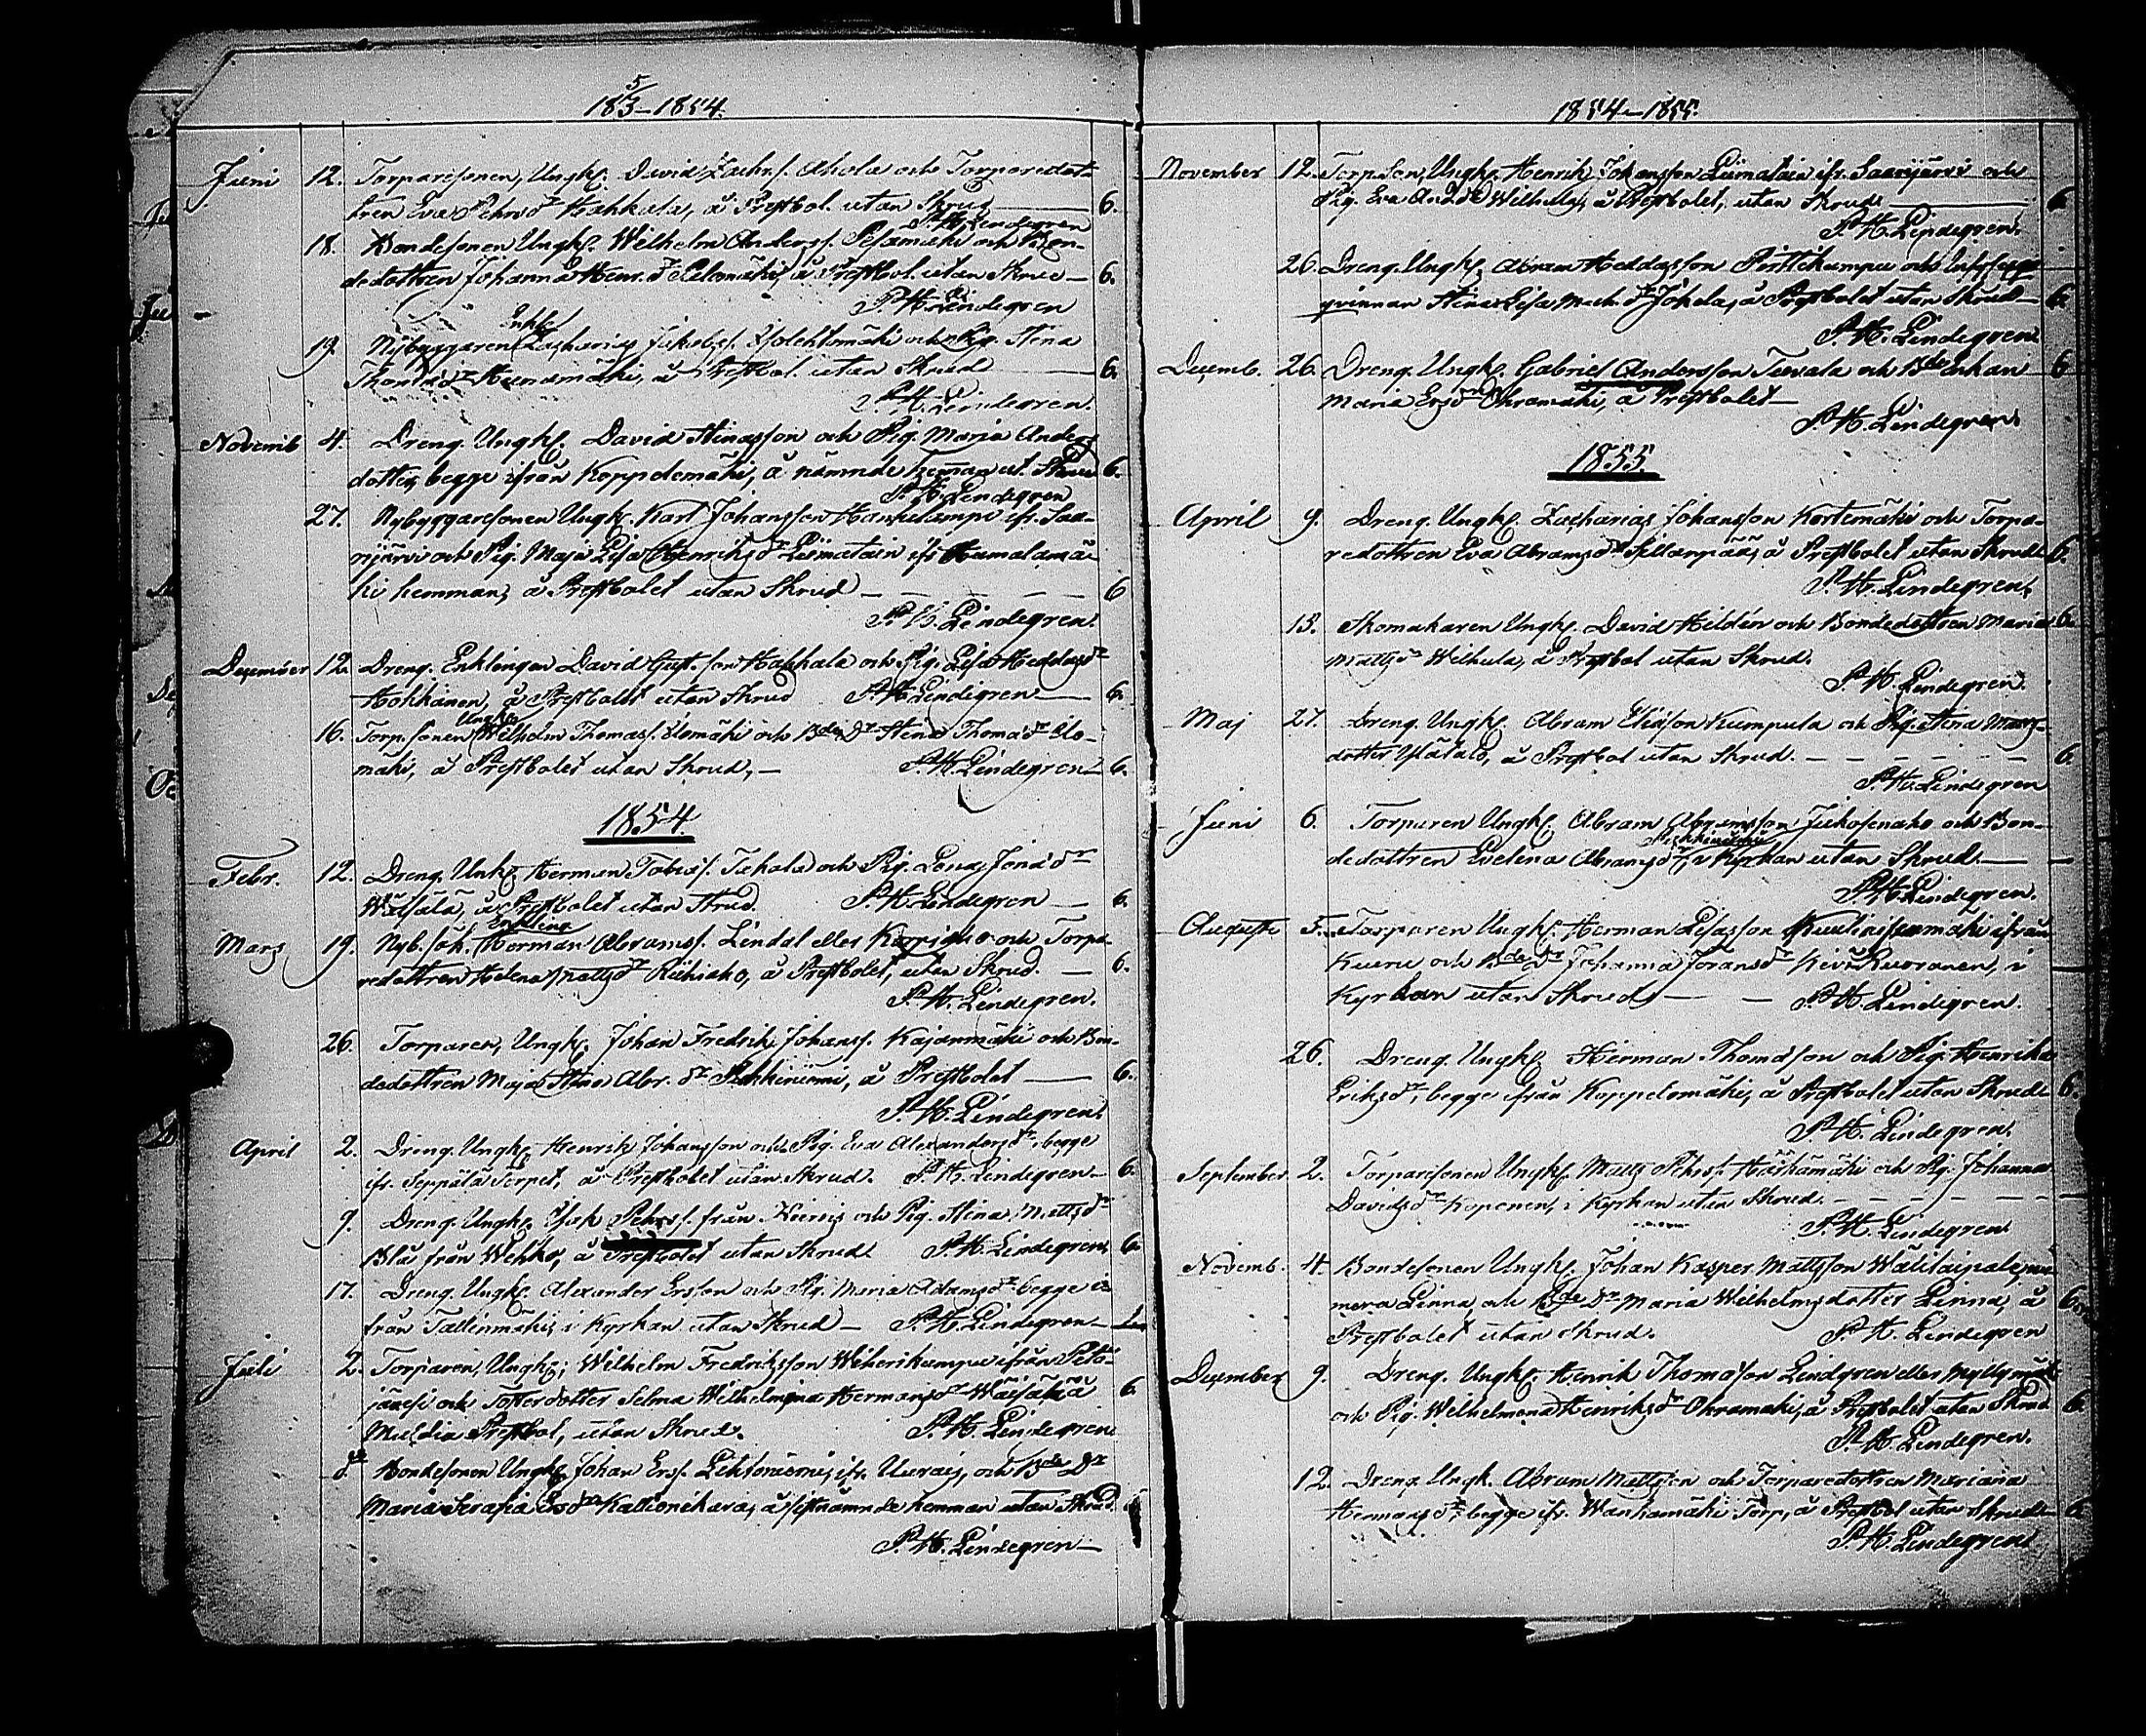 1853–1854.
Juni 12. Torparesonen, Ungk. David Zachr.s. Ahola och Torparedot-
tren Eva Pehrsdr Hahkala, å Prestbol. utan Skrud 6.
P. H. Lindegren
18. Bondesonen Ungk. Wilhelm Anderss. Pesämäki och Bon-
dedottren Johanna Henr.dr Pelomäki, å Prestbol. utan Skrud 6.
P. H. Lindegren
Enkl.
19. Nybyggaren Zacharias Jakobss. och Pig. Stina
Thomædr, å Prestbol. utan Skrud 6.
P. H. Lindegren.
Novemb 4. Dreng. Ungk. David Stinasson och Pig. Maria Anders
dotter, begge ifrån Koppelomäki, å nämnde heman ut. Skrud 6.
P. H. Lindegren
27. Nybyggaresonen Ungk. Karl Johansson Hankilampi ifr. Saa-
rijärvi och Pig. Maja Lisa Henriksdr Liimatain ifr Humalamä-
ki hemman, å Prestbolet utan Skrud 6
P. H. Lindegren.
December 12. Dreng. Enklingen David Gust.son Hakkala och Pig. Lisa Heddasdr
Hokkanen, å Prestbolet utan Skrud P. H. Lindegren 6.
Ungk.
16. Torp.sonen Wilhelm Thomass. Ulomäki och Bde Dr Stina Thomædr Ulo-
mäki, å Prestbolet utan Skrud, P. H. Lindegren 6.
1854.
Febr. 12. Dreng. Unk. Herman Tobias s. och Pig. Lena Jonædr
Wäisälä, å Prestbolet utan Skrud. P. H. Lindegren 6.
Enkling
Mars 19. Nyb. Herman Abramss. Lindal eller och Torpa-
redottren Helena Mattsdr Riihiaho, å Prestbolet, utan Skrud. 6.
P. H. Lindegren.
26. Torparen, Ungk. Johan Fredrik Johanss. Kajanmäki och Bon-
dedottren Maja Stina Abr.dr Pihkiniemi, å Prestbolet 6.
P. H. Lindegren.
April 2. Dreng. Ungk. Henrik Johansson och Pig. Eva Alexandersdr, begge
ifr. Seppälä Torpet, å Prestbolet utan Skrud. P. H. Lindegren 6.
9. Dreng. Ungk. Isak Pehrss. från och Pig. Stina Mattsdr
Blå från Wehko, å Prestbolet utan Skrud P. H. Lindegren 6.
17. Dreng. Ungk. Alexander Ersson och Pig. Maria Adamsdr begge
från Tallinmäki, i Kyrkan utan Skrud P. H. Lindegren
Juli 2. Torparen, Ungk. Wilhelm Fredriksson Wiherikumpu ifrån Petä-
jävesi och Dotterdotter Selma Wilhelmina Hermansdr Wäisälä
Multia Prestbol, utan Skrud. P. H. Lindegren 6.
de Bondesonen Ungk. Johan Erss. Lehtoniemi, ifr. Uurais, och Bde Dr
Maria Serafia Ersdr Kallionikara, å sistnämnde hemman utan Skrud.
P. H. Lindegren
1854–1855.
November 12. Torp.son, Ungk. Henrik Johansson Liimatain ifr. Saarijärvi och
Pig. Eva And.dr Wilhula, å Prestbolet, utan Skrud 6
P. H. Lindegren.
26. Dreng. Ungk. Abram Heddasson Pirttikumpu och
qvinnan Stina Lisa Mich.dr Jokela, å Prestbolet utan Skrud 6.
P. H. Lindegren
Decemb. 26. Dreng. Ungk. Gabriel Andersson Tuvala och Bde Enkan 6
Maria Ersdr Ohramäki, å Prestbolet
P. H. Lindegren
1855.
April 9. Dreng. Ungk. Zacharias Johansson Kortemäki och Torpa-
redottren Eva Abramsdr Sillanpää, å Prestbolet utan Skrud 6.
P. H. Lindegren.
15. Skomakaren Ungk. David Hildén och Bondedottren Maria 6.
Mattsdr Wilhula, å Prestbol utan Skrud.
P. H. Lindegren.
Maj 27. Dreng. Ungk. Abram Eliasson Kumpula och Pig. Stina Mats-
dotter Ylätalo, å Prestbol utan Skrud. 6.
P. H. Lindegren
Juni 6. Torparen Ungk. Abram Abramsson Jukosenaho och Bon-
Pihkiniemi
dedottren Evelina Abramsdr, i Kyrkan utan Skrud.
P. H. Lindegren.
Augusti 5. Torparen Ungk. Herman Lisasson ifrån
Kuru och Bde Dr Johanna Joransdr Kuoranen, i
Kyrkan utan Skrud P. H. Lindegren.
26. Dreng. Ungk. Herman Thomasson och Pig. Henrika
Eriksdr, begge ifrån Koppelomäki, å Prestbolet utan Skrud 6.
P. H. Lindegren.
September 2. Torparesonen Ungk. Matts Pehrss. Härkämäki och Pig. Johanna
Davidsdr Koponen, i Kyrkan utan Skrud.
P. H. Lindegren
Novemb. 4. Bondesonen Ungk. Johan Kasper Mattsson Wälilaipale, nu-
mera Linna, och Bde Dr Maria Wilhelmsdotter Linna, å
Prestbolet utan Skrud. P. H. Lindegren
December 9. Dreng. Ungk. Henrik Thomasson Lindgren eller Myllymäki
och Pig. Wilhelmina Henriksdr Ohramäki, å Prestbolet utan Skrud 6.
P. H. Lindegren.
12. Dreng. Ungk. Abram Mattsson och Torparedottren Mariana
Hermansdr begge ifr. Wanhamäki Torp, å Prestbol utan Skrud 6
P. H. Lindegren